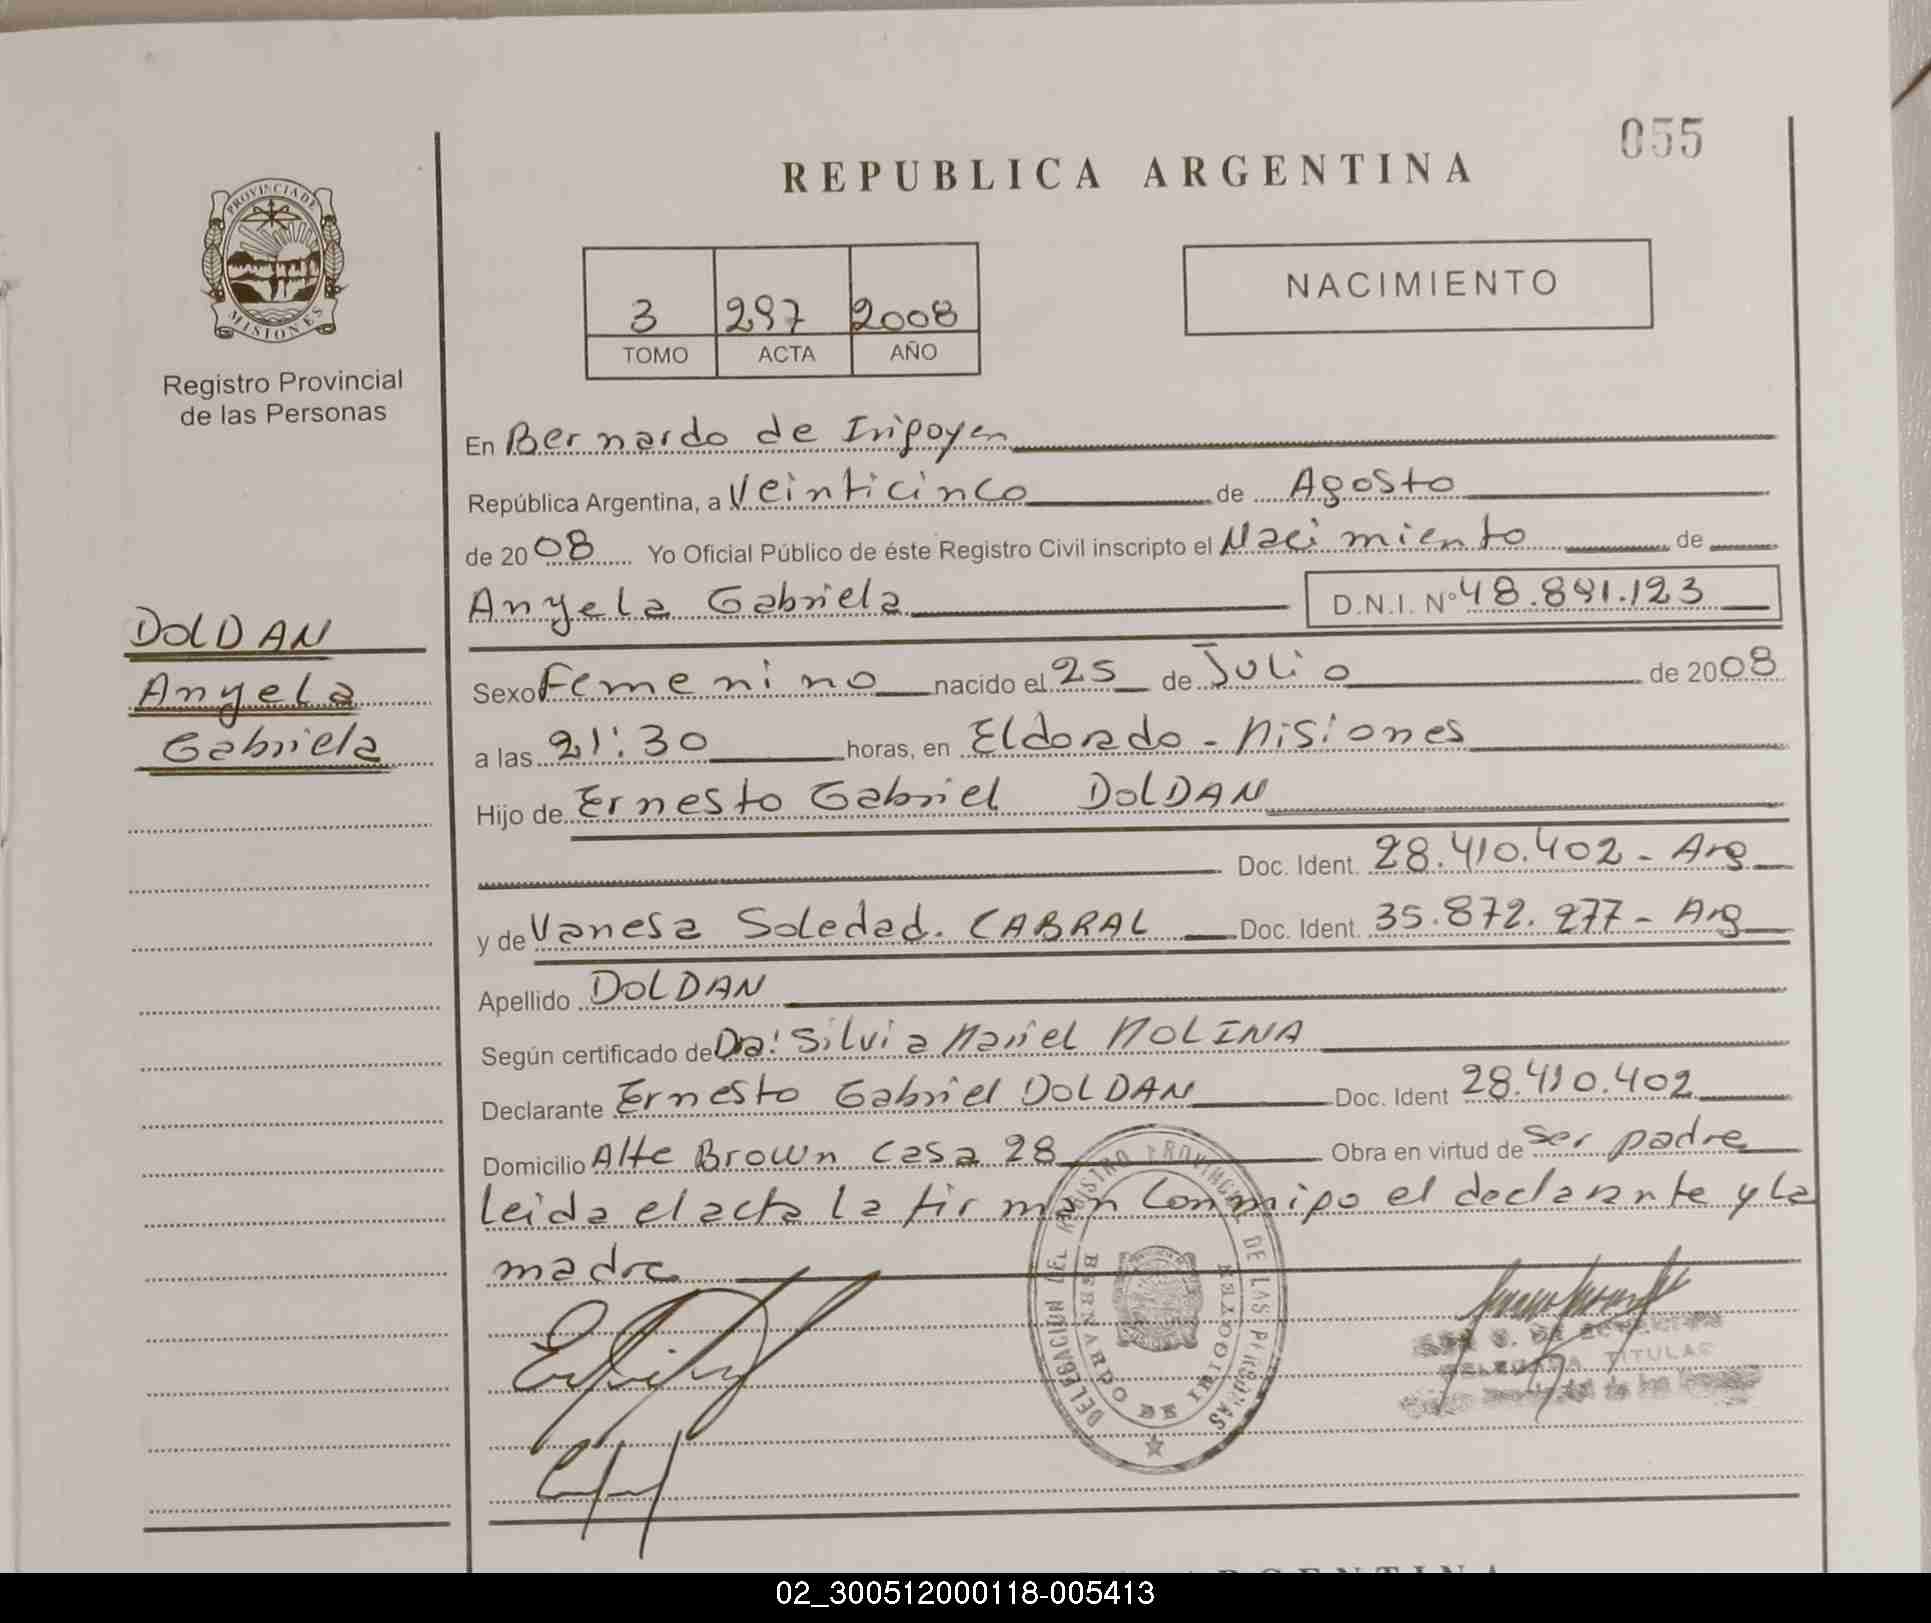 055
REPUBLICA ARGENTINA
PROVINCIA DE
MISIONES
Registro Provincial
de las Personas
3 297 2008
TOMO ACTA AÑO
NACIMIENTO
En Bernardo de Irigoyen
República Argentina, a Veinticinco de Agosto
de 2008 Yo Oficial Público de éste Registro Civil inscripto el Nacimiento de
Anyela Gabriela D.N.I. Nº 48.891.123
DOLDAN
Anyela
Gabriela
Sexo Femenino nacido el 25 de Julio de 2008
a las 21:30 horas, en Eldorado - Misiones
Hijo de Ernesto Gabriel DOLDAN
Doc. Ident. 28.410.402 - Arg
y de Vanesa Soledad. CABRAL Doc. Ident. 35.872.277 - Arg
Apellido DOLDAN
Según certificado de Dra: Silvia Mariel MOLINA
Declarante Ernesto Gabriel DOLDAN Doc. Ident 28.410.402
Domicilio Alte Brown Casa 28 Obra en virtud de ser padre
leida el acta la firman conmigo el declarante y la
madre
DELEGACION DEL REGISTRO PROVINCIAL DE LAS PERSONAS
BERNARDO DE IRIGOYEN
DELEGADA TITULAR
ARGENTINA
02_300512000118-005413